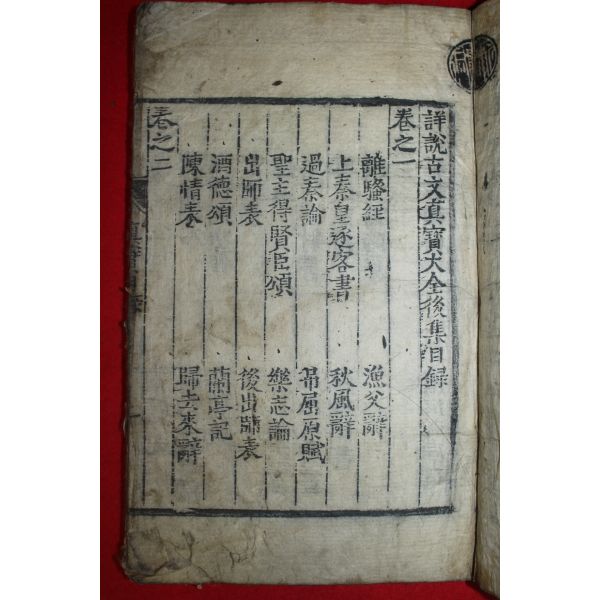 詳說古文真寶大全後集目錄
卷之一
離騷經 漁父辭
上秦皇逐客書 秋風辭
過秦論 吊屈原賦
聖主得賢臣頌 樂志論
出師表 後出師表
酒德頌 蘭亭記
陳情表 歸去來辭
卷之二